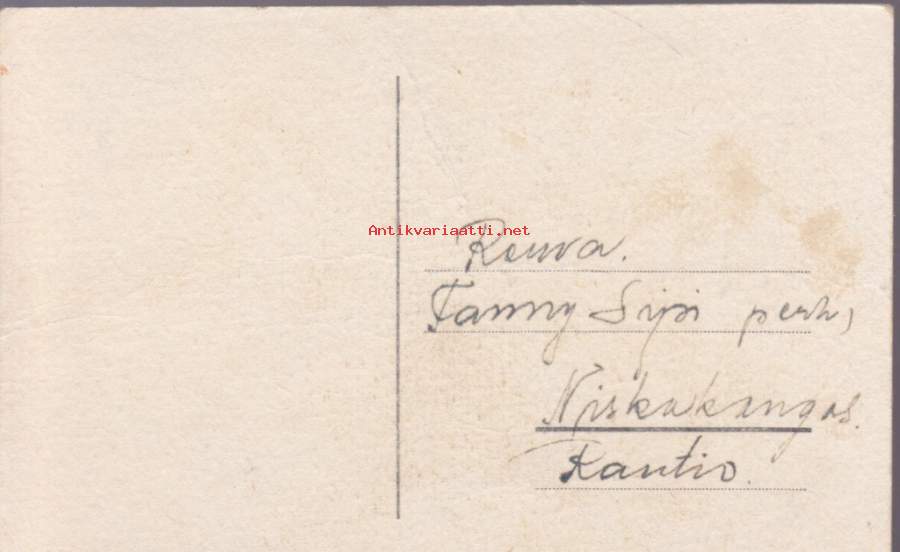 Antikvariaatti.net
Rouva.
Fanny Sipi perh,
Niskakangas.
Rautio.